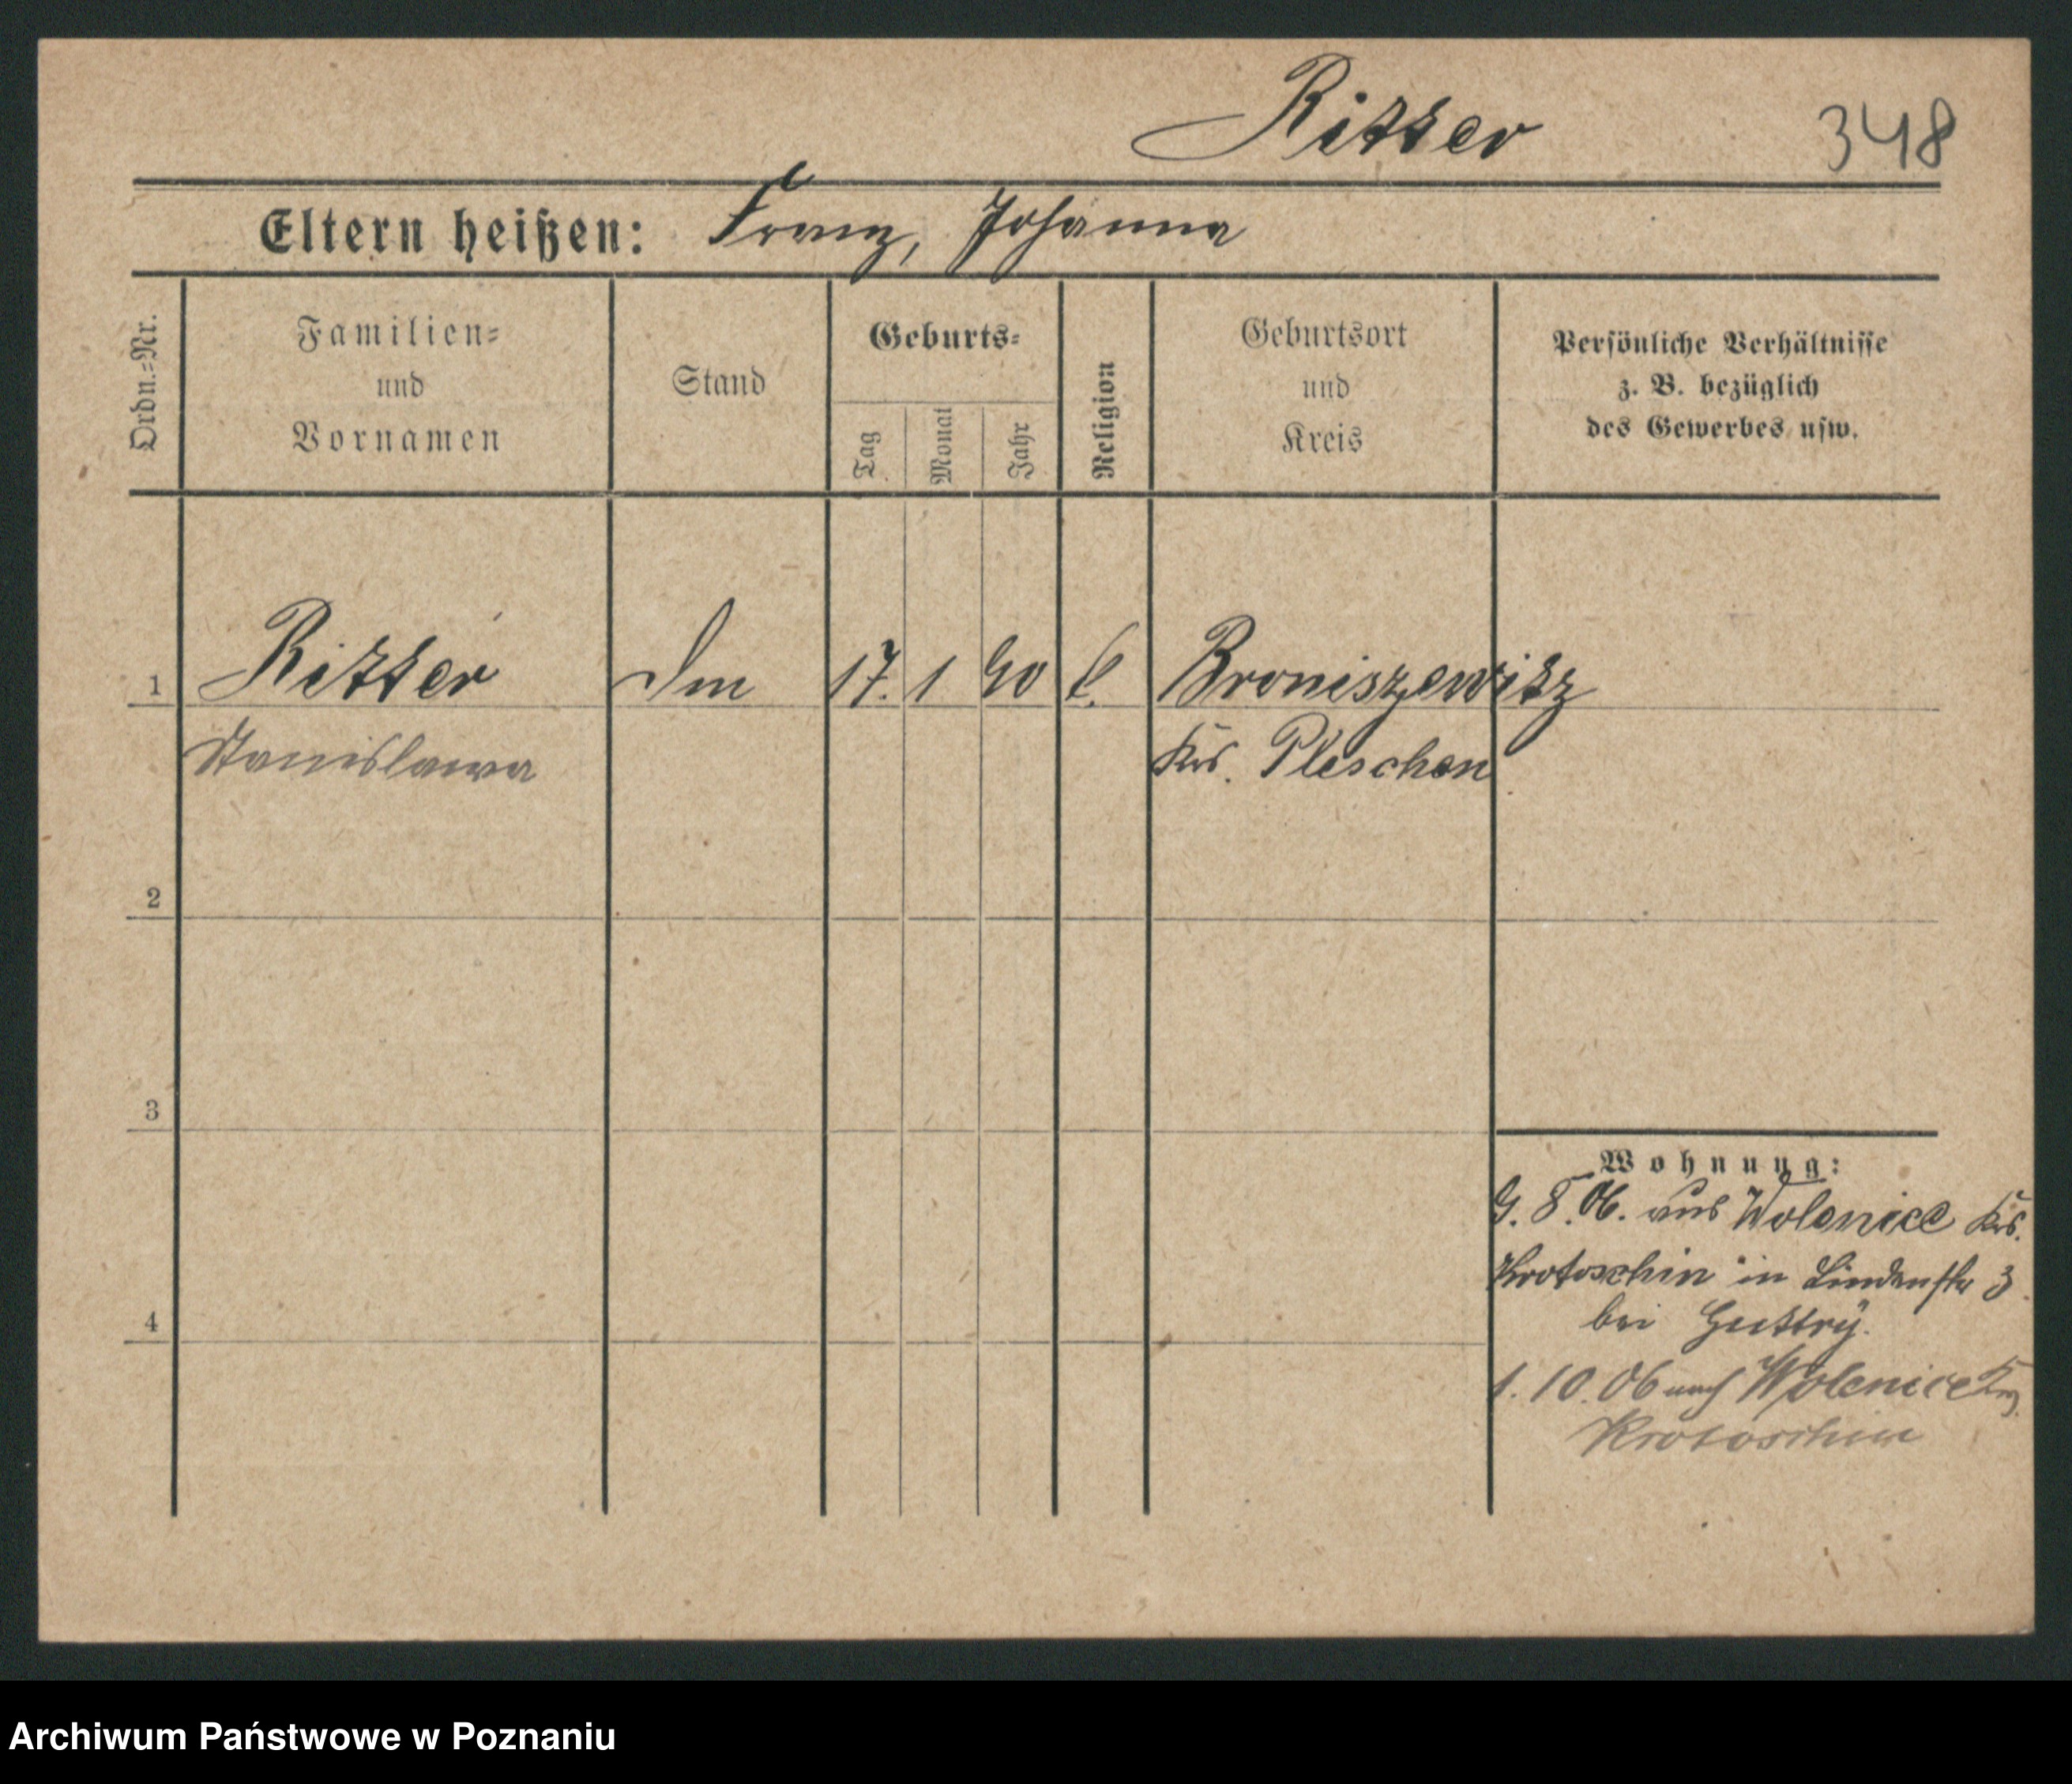 Ritter 348
Eltern heißen: Franz, Johanna
Ordn.-Nr.
Familien- und Vornamen
Stand
Geburts-
Tag
Monat
Jahr
Religion
Geburtsort und Kreis
Persönliche Verhältnisse
z. B. bezüglich
des Gewerbes usw.
1 Ritter 17. 1 90 Broniszewitz
Stanislawa Krs. Pleschen
2
3
4
Wohnung:
9. 8. 06. aus Wolenice Krs.
Krotoschin in Lindenstr 3
bei Guttry.
1. 10. 06 nach Wolenice Krs.
Krotoschin
Archiwum Państwowe w Poznaniu